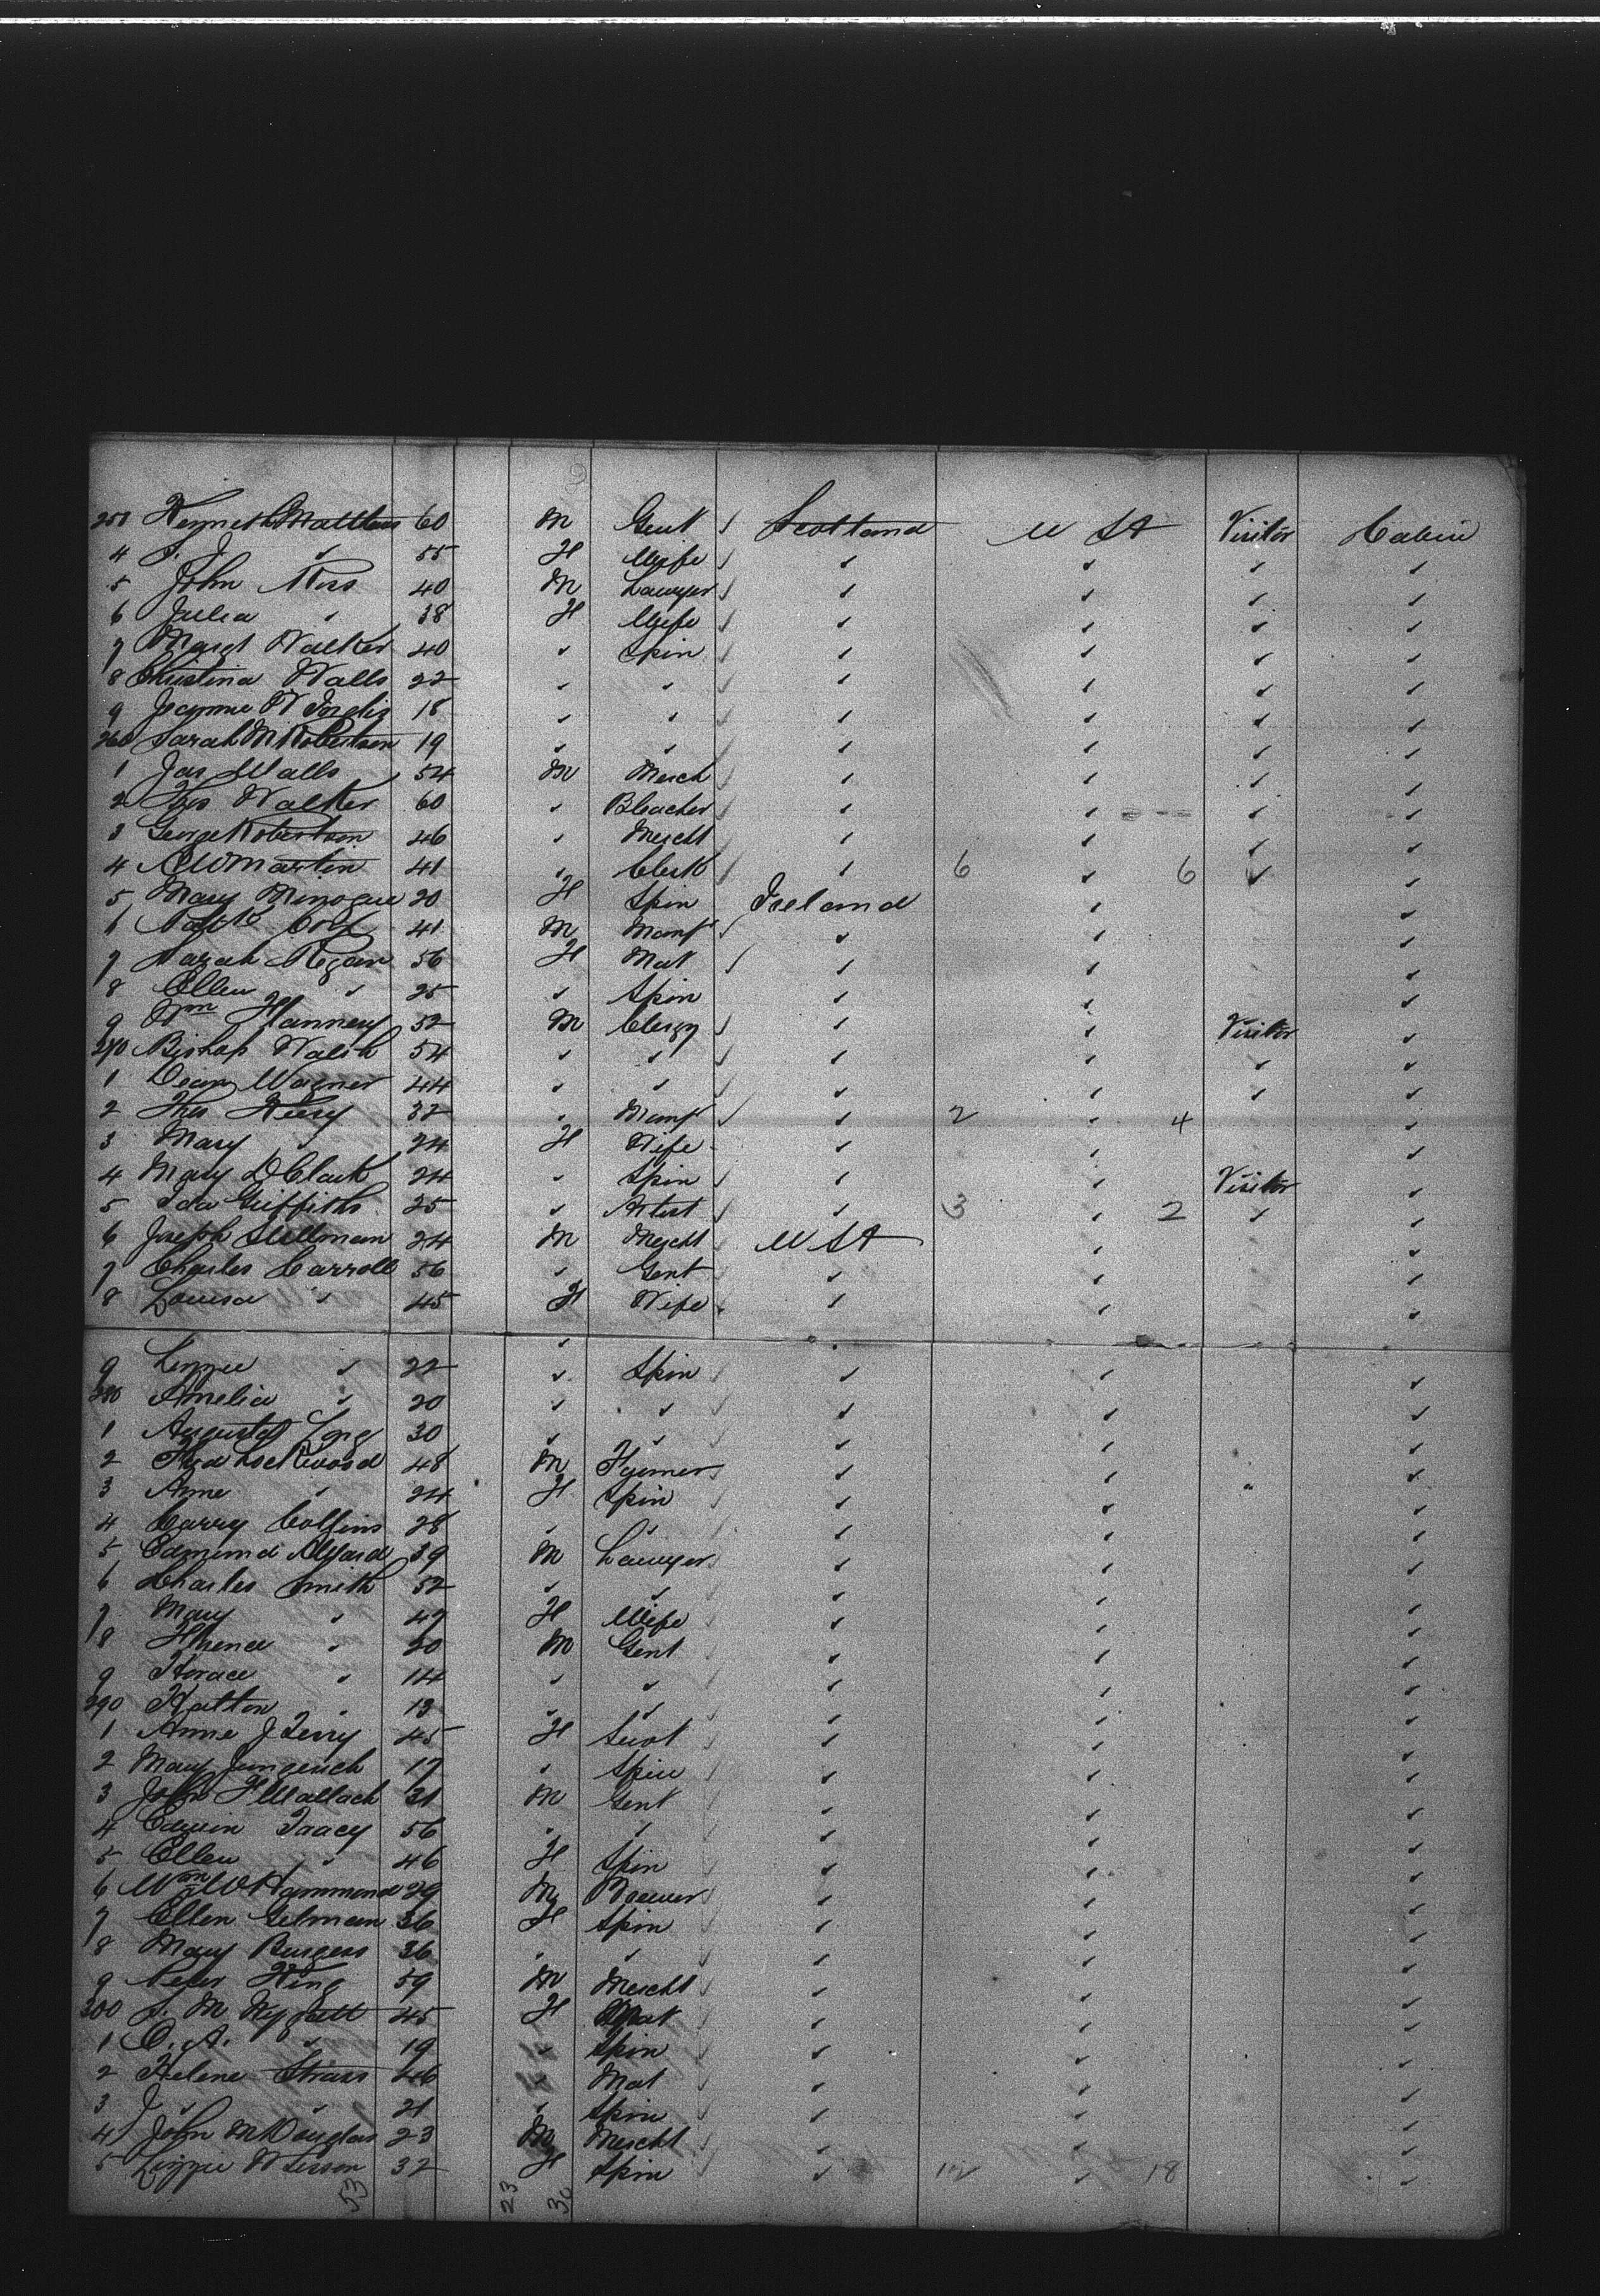 253 Kenneth Matthews 60 M Gent Scotland U St Visitor Cabin
4 S. J. " 55 F Wife " " " "
5 John Ross 40 M Lawyer " " " "
6 Julia " 38 F Wife " " " "
7 Margt Walker 40 " Spin " " " "
8 Christina Walls 22 " " " " " "
9 Jeannie W Inglis 18 " " " " " "
260 Sarah M Robertson 19 " " " " " "
1 Jas Walls 54 M Merch " " " "
2 Thos Walker 60 " Bleacher " " " "
3 George Robertson 46 " Mercht " " " "
4 A W Martin 41 " Clerk " 6 " 6 " "
5 Mary Minogue 20 F Spin Ireland " "
6 41 M Manf " " "
7 Sarah Regan 56 F Mat " " "
8 Ellen " 25 " Spin " " "
9 Wm Flannery 52 M Clergy " " Visitor "
270 Bishop Walsh 54 " " " " " "
1 Dean Wagner 44 " " " " " "
2 Thos 32 " Manf " 2 " 4 "
3 Mary " 24 F Wife " " "
4 Mary D Clark 24 " Spin " " Visitor "
5 Ida Griffiths 25 " Artist " 3 " 2 " "
6 Joseph Stillman 24 M Mercht U St " "
7 Charles Carroll 56 " Gent " " "
8 Louisa " 45 F Wife " " "
9 Lizzie " 22 " Spin " " "
280 Amelia " 20 " " " " "
1 Augusta Long 30 " " " " "
2 Lockwood 48 M " " "
3 Anne " 24 F Spin " " "
4 Carry Collins 28 " " " " "
5 Edmund Allard 39 M Lawyer " " "
6 Charles Smith 52 " " " " "
7 Mary " 47 F Wife " " "
8 " 20 M Gent " " "
9 Horace " 14 " " " " "
290 Halton " 13 " " " " "
1 Anne J Terry 45 F Servt " " "
2 Mary Jungerich 17 " Spin " " "
3 John F Wallach 31 M Gent " " "
4 Edwin Tracey 56 " " " " "
5 Ellen " 46 F Spin " " "
6 Wm W Hammond 29 M Brewer " " "
7 Ellen Gilman 36 F Spin " " "
8 Mary Burgess 36 " " " " "
9 Peter King 59 M Mercht " " "
300 S. M 45 F Mat " " "
1 C. A. " 19 " Spin " " "
2 Helene Strass 46 " Mat " " "
3 J " 21 " Spin " " "
4 John McDouglas 23 M Mercht " " "
5 Lizzie 32 F Spin " 12 " 18 "
53 23 30